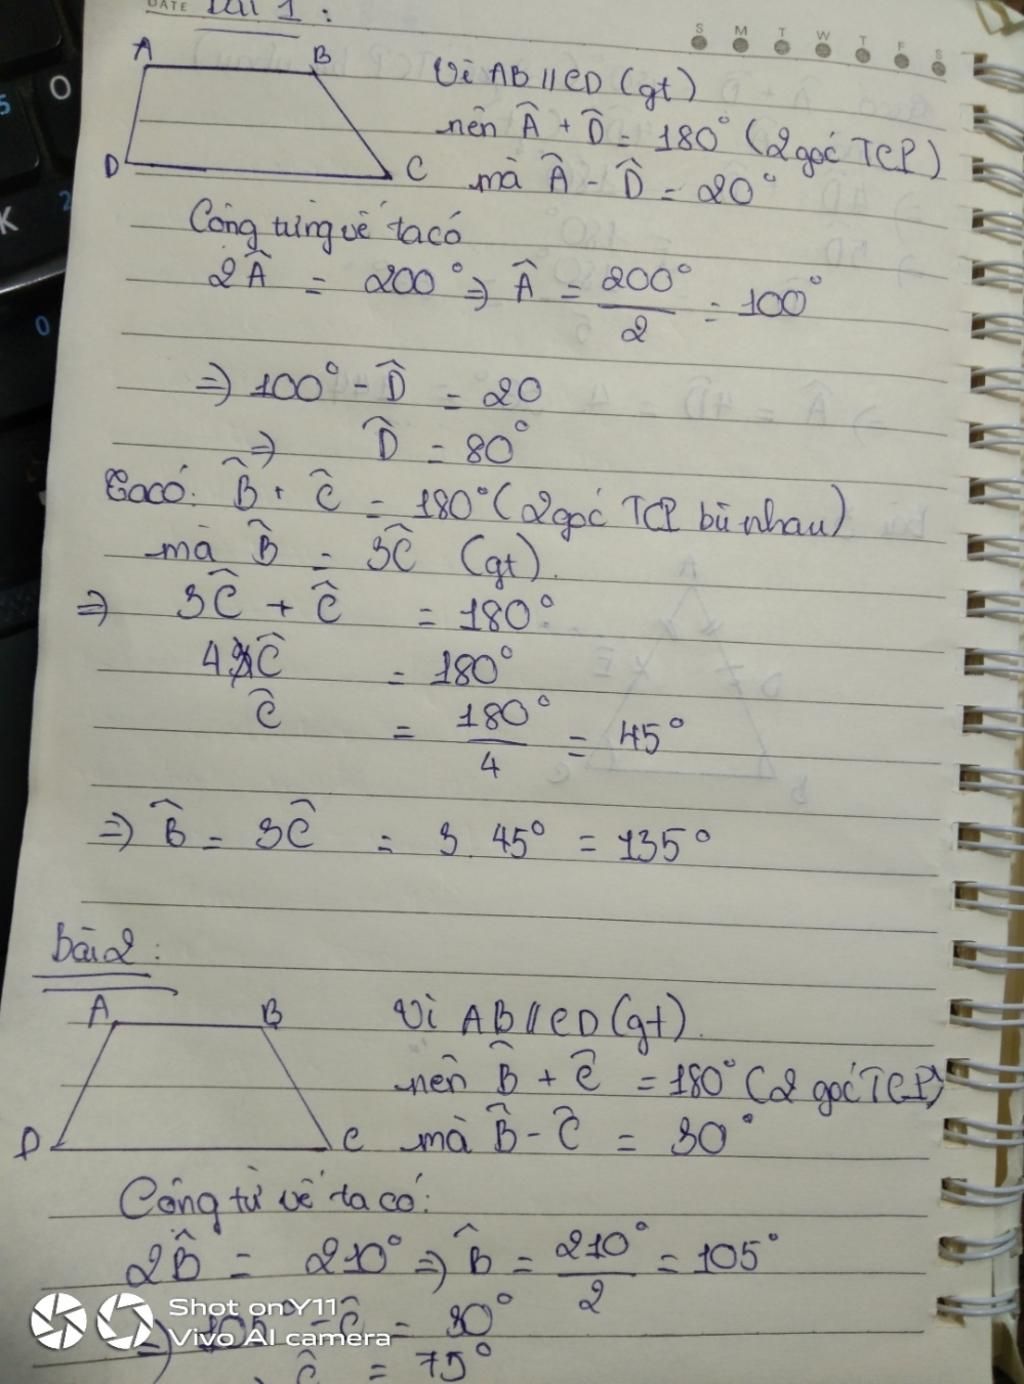 DATE Bài 1 :
S M T W T F S
A B
D C
Vì AB // CD (gt)
nên Â + D̂ = 180° (2 góc TCP)
mà Â - D̂ = 20°
Cộng từng vế ta có
2Â = 200° => Â = 200°/2 = 100°
=> 100° - D̂ = 20
=> D̂ = 80°
Ta có: B̂ + Ĉ = 180° (2 góc TCP bù nhau)
mà B̂ = 3Ĉ (gt).
=> 3Ĉ + Ĉ = 180°
4Ĉ = 180°
Ĉ = 180°/4 = 45°
=> B̂ = 3Ĉ = 3. 45° = 135°
bài 2 :
A B
D C
Vì AB // CD (gt).
nên B̂ + Ĉ = 180° (2 góc TCP)
mà B̂ - Ĉ = 30°
Cộng từ vế ta có:
2B̂ = 210° => B̂ = 210°/2 = 105°
=> 105° - Ĉ = 30°
Ĉ = 75°
Shot on Y11
Vivo AI camera
5 O
K 2
0